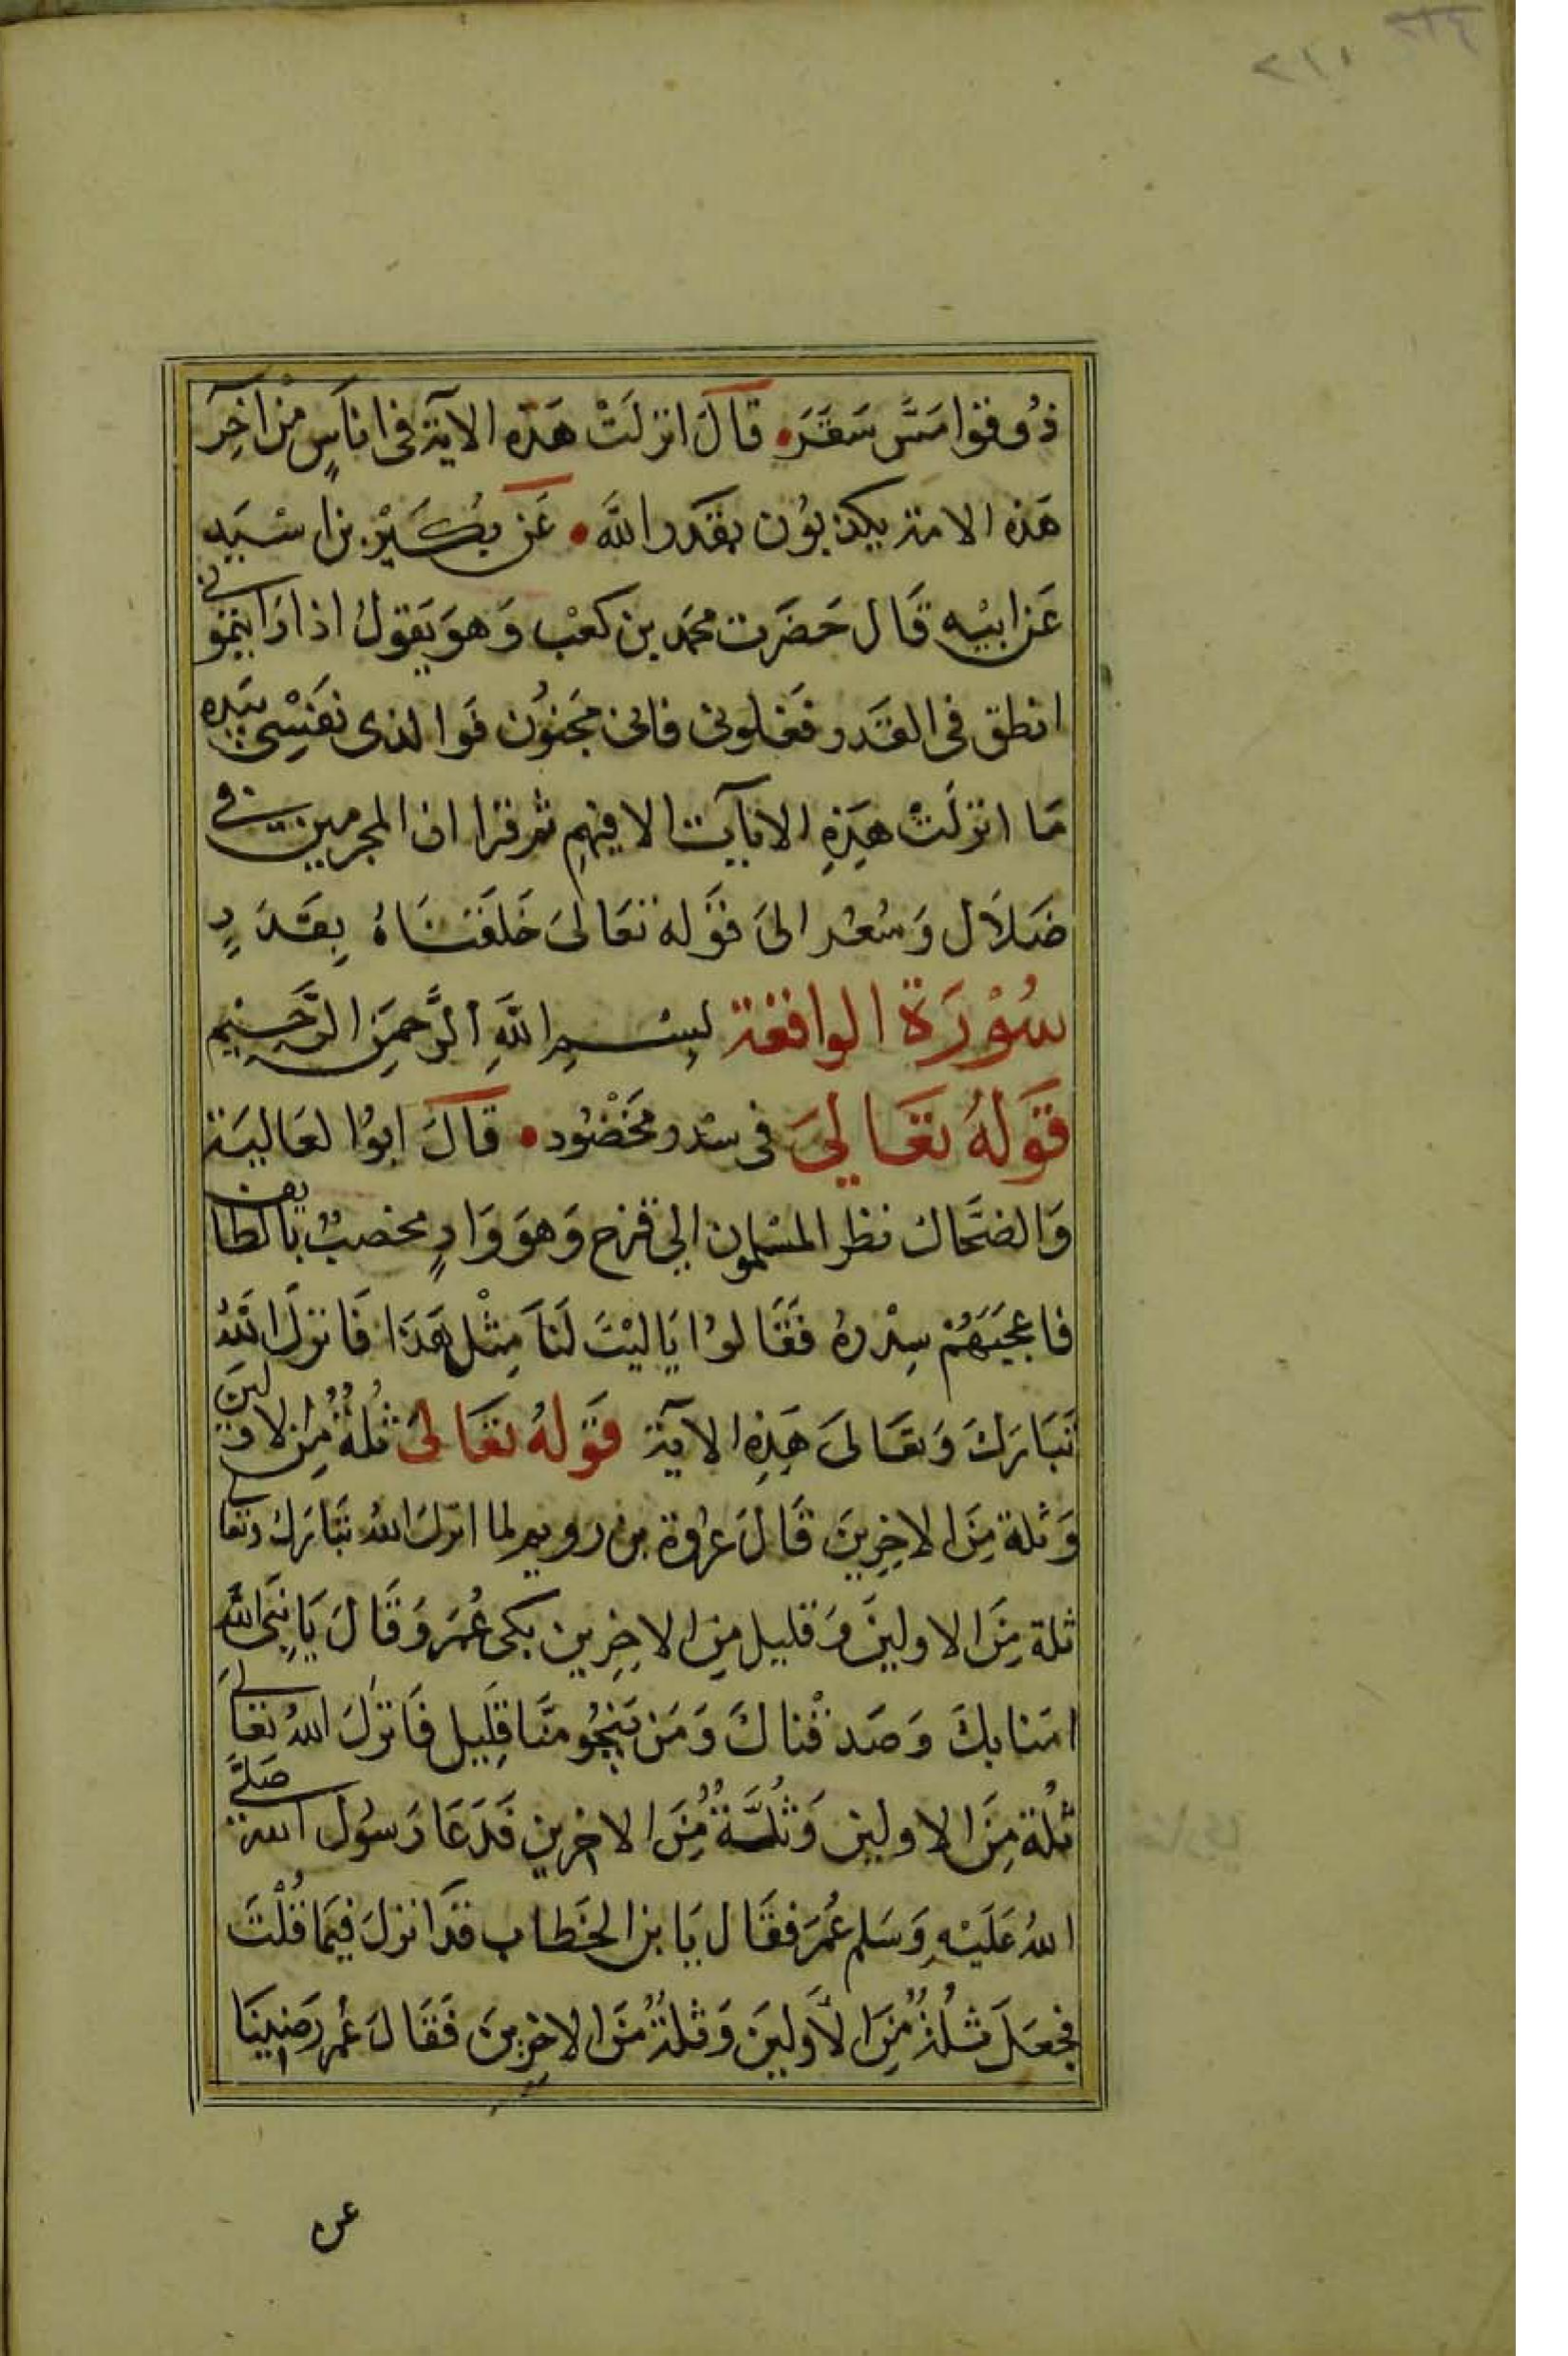 ٢١١
ذُوقوا مَسَّ سَقَرَ قَالَ انزلَتْ هَذِه الآية فى انَاسٍ من آخِرَ
هَذه الامة يكذبوُن بقَدر اللَّه عَن بُكَيْر بن اسْيَد
عَن ابيْه قَال حَضَرت محمد بن كعْب وَهوَ يَقولُ اذا رَايتموُنى
انطق فى القدر فَغلونى فانى مَجنوُن فَوا لذى نَفْسِى بيَده
مَا انزلَتْ هَذِهِ الايآيت الا فيهِم ثم قرا ان المجرمين فى
ضَلاَل وَسُعُر الىَ قَوله تعَالىَ خَلَقنَاهُ بِقَدَرٍ
سُوْرَة الواقعة بِسْمِ اللَّهِ الرَّحمَنِ الرَّحَيْمِ
قَولهُ تعَالىَ فى سدر مَخضُود قَالَ ابوُا لعَاليَة
وَالضحَاك نظر المسْلمون الى فرح وَهوَ وَادٍ مخصبٌ بالطايف
فاعجبَهُمْ سِدْرهُ فَقَالوُا يَاليْتَ لَنَا مِثْل هَذا فَانزلَ اللهُ
تَبَارَكَ وَتعَالىَ هَذِه الآية قَولهُ تعَالىَ ثُلةٌ مِن الاولينَ
وَثلة مِنَ الاخِرِينَ قَالَ عرُوة بن رويم لما انزلَ اللهُ تبَارَك وتعالى
ثلة مِنَ الاولينَ وَقليل مِن الاخِرِين بكى عُمَر وَقَالَ يَا نبىَ اللَّه
امَنا بكَ وَصَدقْناكَ وَمَن يَنجُو منَّا قَلِيل فَانزلَ اللهُ تعَالىَ
ثلُة مِنَ الاولين وَثُلَّةٌ مُنَ الاخرين فَدَعَا رَسوُل الله صَلى
اللهُ عَلَيْهِ وَسَلم عُمَرَ فقَال يَا بن الخَطاب قد انزلَ فِيمَا قُلْتَ
فجعَلَ ثلُةٌ مُنَ الأَولينَ وَثلةٌ مُنَ الاخِرِينَ فَقَالَ عُمر رَضينَا
عن